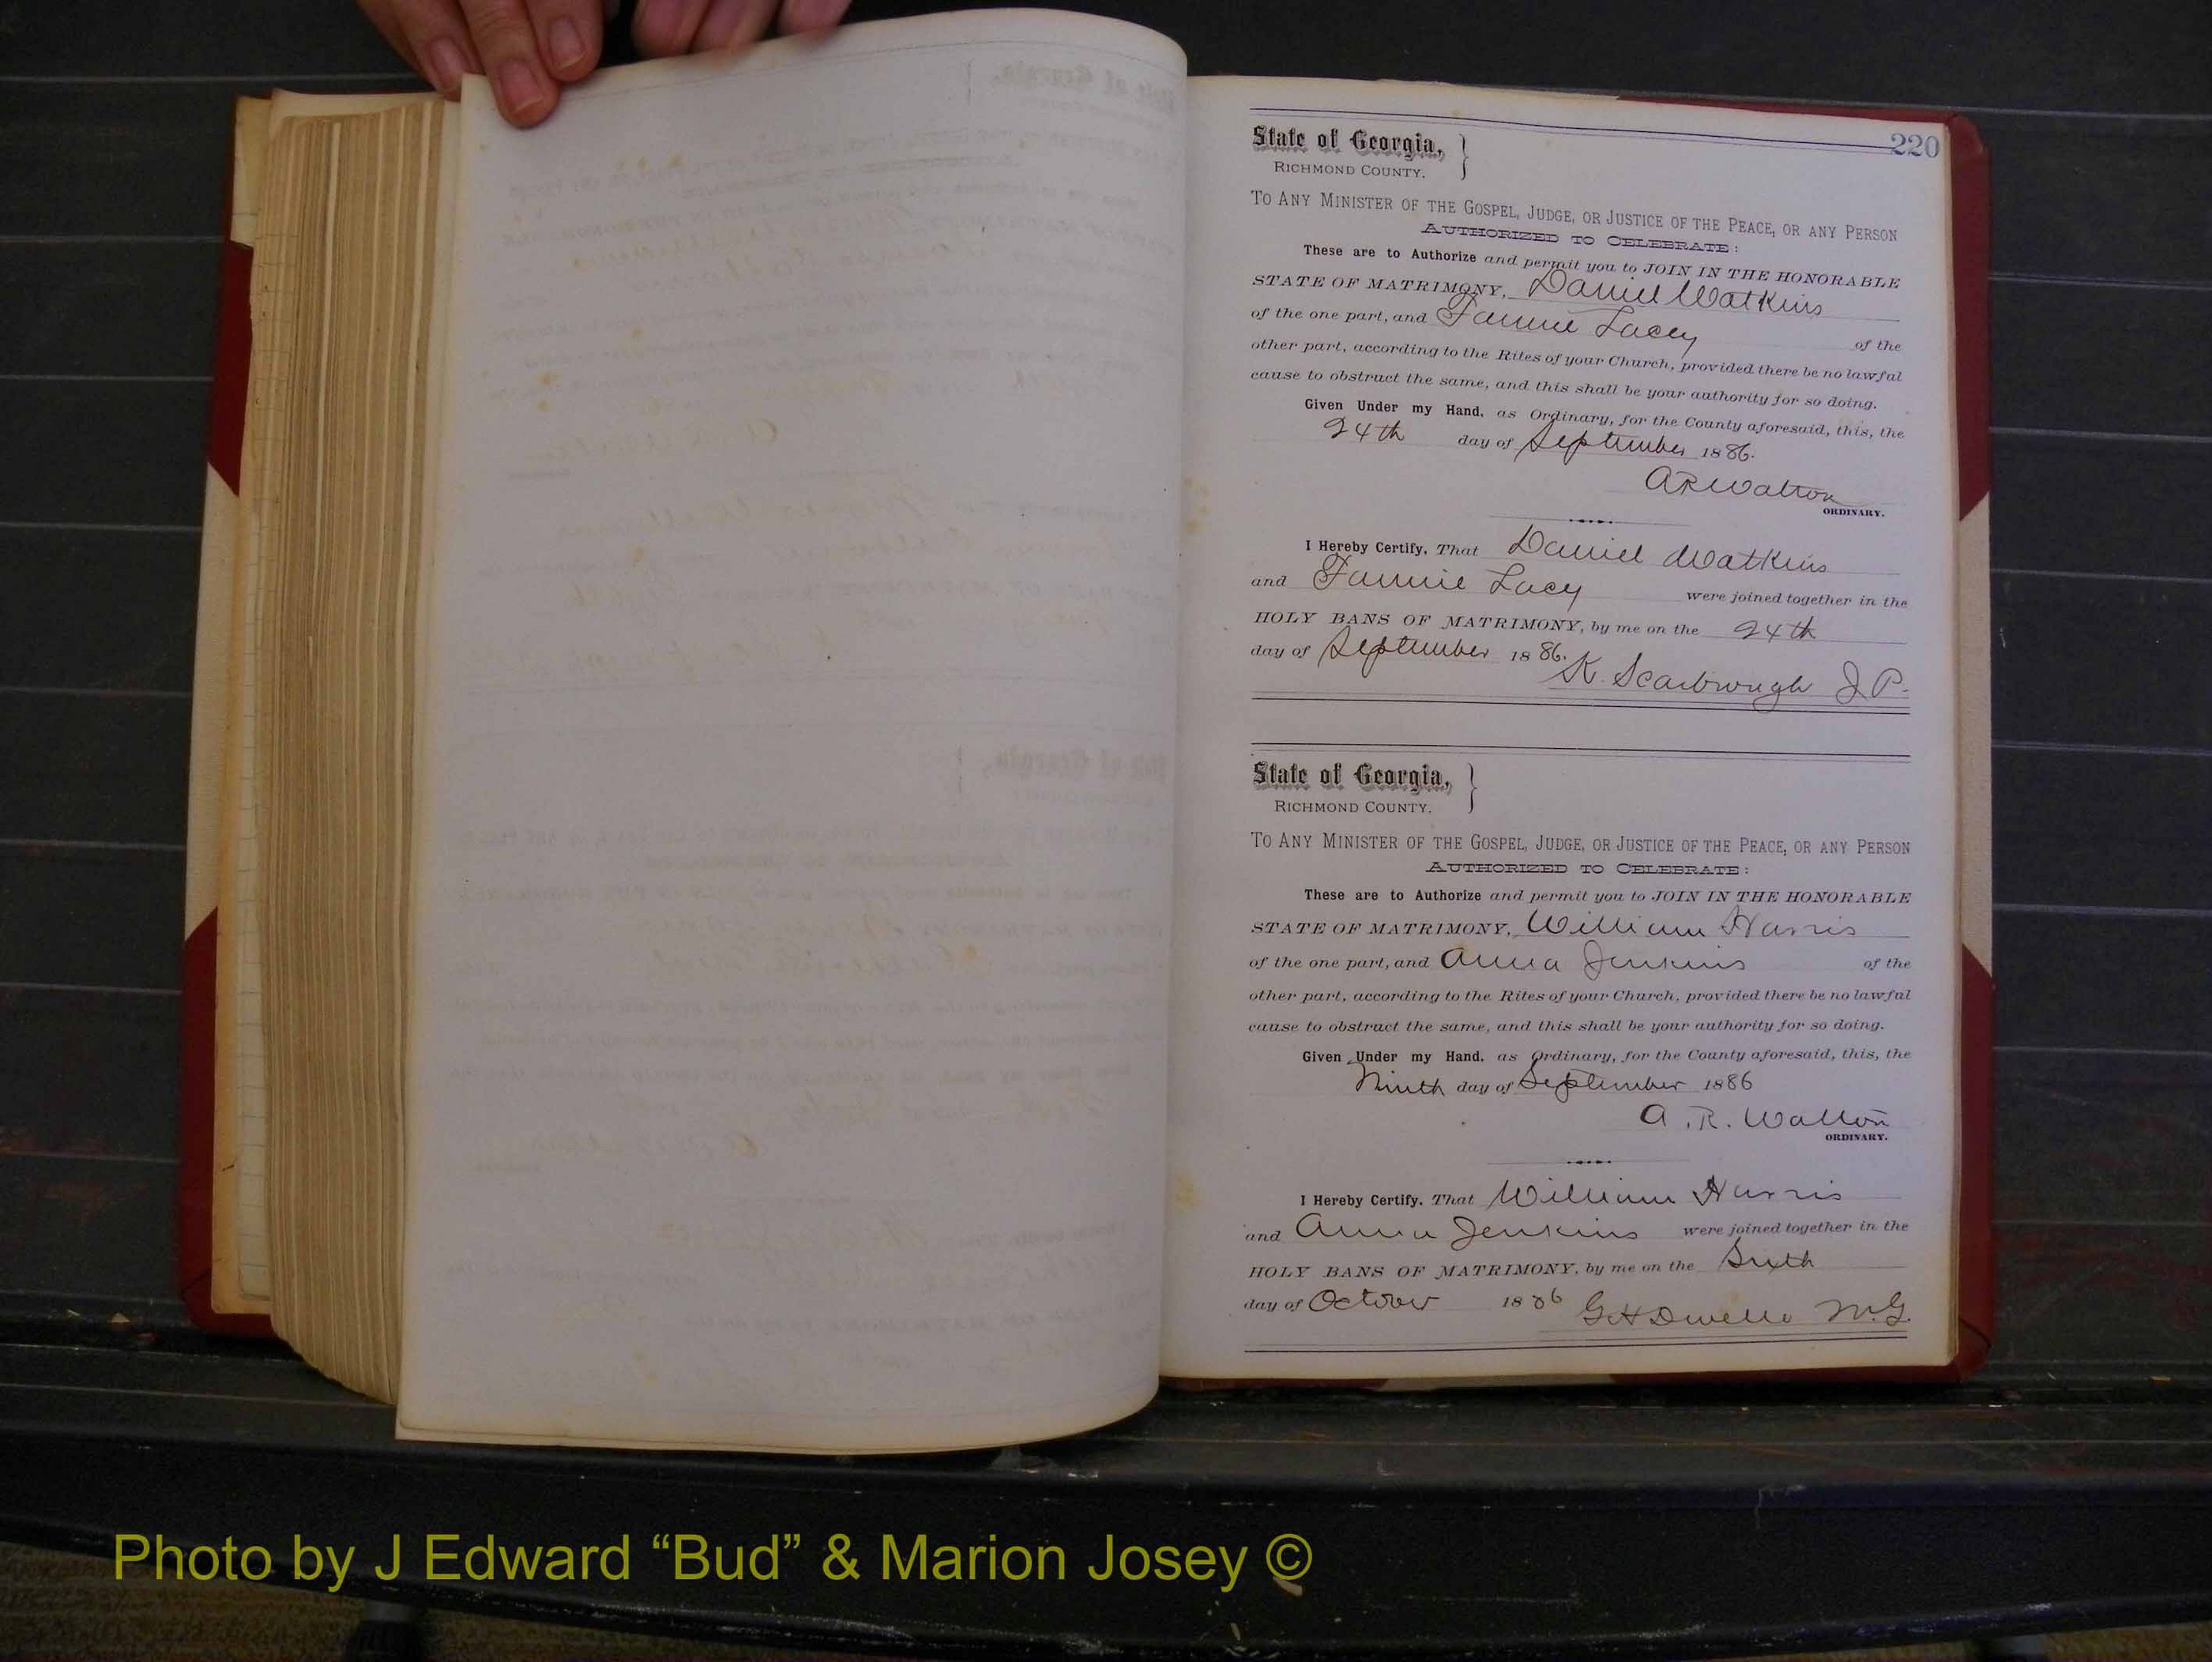 220
State of Georgia,
RICHMOND COUNTY.
TO ANY MINISTER OF THE GOSPEL, JUDGE, OR JUSTICE OF THE PEACE, OR ANY PERSON
AUTHORIZED TO CELEBRATE:
These are to Authorize and permit you to JOIN IN THE HONORABLE
STATE OF MATRIMONY, Daniel Watkins
of the one part, and Fannie Lacey of the
other part, according to the Rites of your Church, provided there be no lawful
cause to obstruct the same, and this shall be your authority for so doing.
Given Under my Hand, as Ordinary, for the County aforesaid, this, the
24th day of September 1886.
A R Walton
ORDINARY.
I Hereby Certify, That Daniel Watkins
and Fannie Lacy were joined together in the
HOLY BANS OF MATRIMONY, by me on the 24th
day of September 1886.
K. Scarbrough J P.
State of Georgia,
RICHMOND COUNTY.
TO ANY MINISTER OF THE GOSPEL, JUDGE, OR JUSTICE OF THE PEACE, OR ANY PERSON
AUTHORIZED TO CELEBRATE:
These are to Authorize and permit you to JOIN IN THE HONORABLE
STATE OF MATRIMONY, William Harris
of the one part, and Anna Jenkins of the
other part, according to the Rites of your Church, provided there be no lawful
cause to obstruct the same, and this shall be your authority for so doing.
Given Under my Hand, as Ordinary, for the County aforesaid, this, the
Ninth day of September 1886
A. R. Walton
ORDINARY.
I Hereby Certify, That William Harris
and Anna Jenkins were joined together in the
HOLY BANS OF MATRIMONY, by me on the Sixth
day of October 1886 G H Dwelle M.G.
Photo by J Edward “Bud” & Marion Josey ©